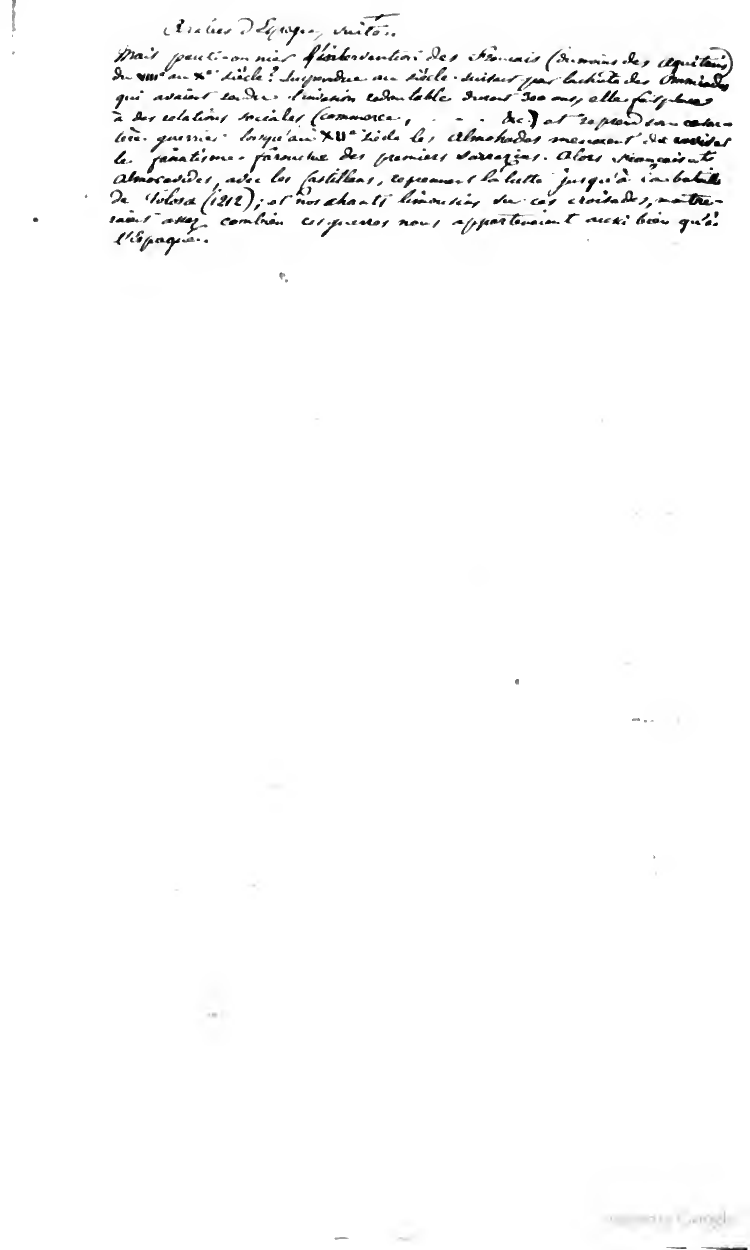 Arabes d'Espagne, suite.
Mais peut-on nier l'intervention des Français (du moins des Aquitains)
du VIIIe au Xe siècle? Suspendue au siècle suivant par la chute des Ommiades
qui avaient rendu l'invasion redoutable durant 300 ans, elle fait place
à des relations sociales (commerce, . - - . &c.) et reprend son carac-
tère guerrier lorsqu'au XIIe siècle les Almohades menacent de raviver
le fanatisme farouche des premiers Sarrazins. Alors Français et
Almoravides, avec les Castillans, reprennent la lutte jusqu'à la bataille
de Tolosa (1212); et nos chants limousins sur ces croisades, montre-
raient assez combien ces guerres nous appartenaient aussi bien qu'à
l'Espagne.
Google